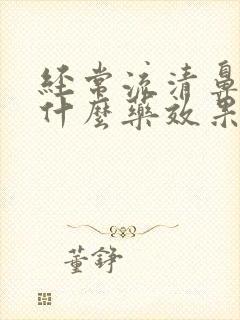 经常流清鼻
什麼藥效果
董錚